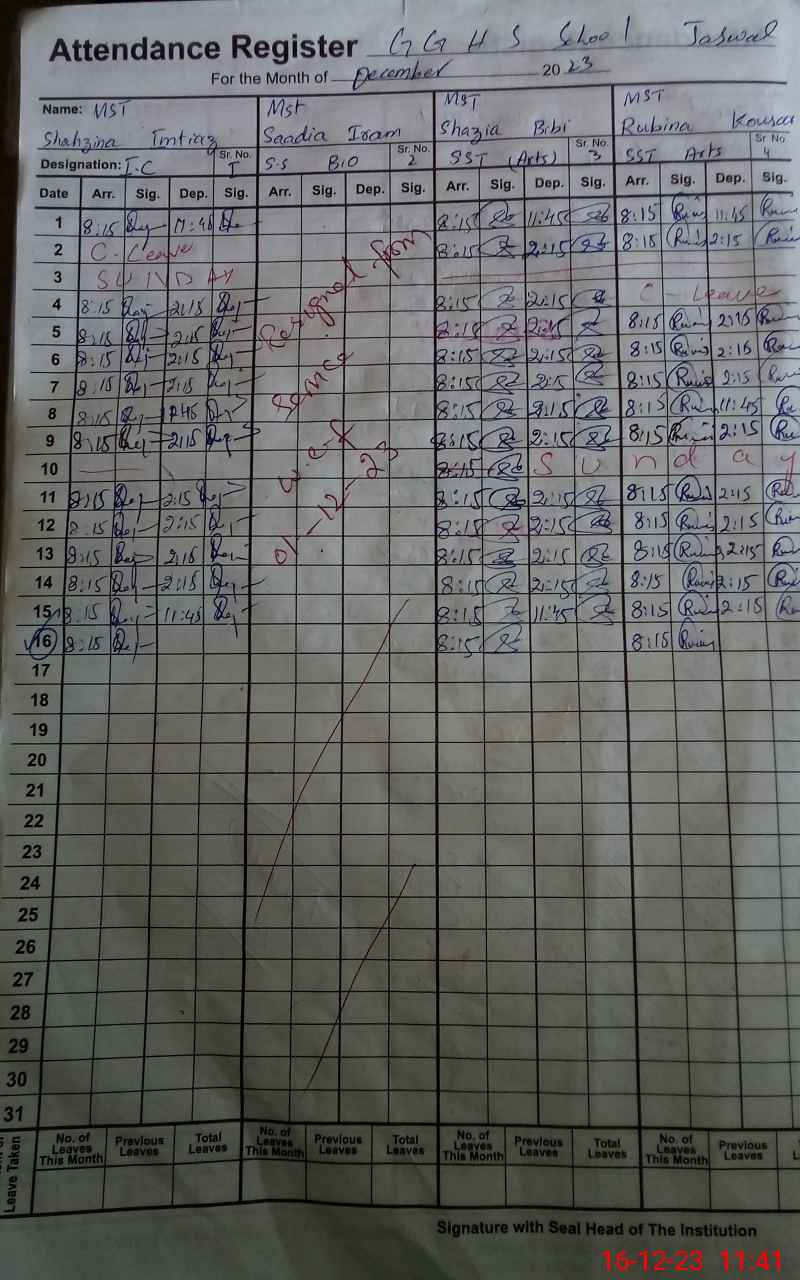 Attendance Register GGHS School Jaswal
For the Month of December 2023
Name: MST Mst MST MST
Shahzina Imtiaz Saadia Iram Shazia Bibi Rubina Kousar
Designation: I.C Sr. No. 1 S.S BIO Sr. No. 2 SST (Arts) Sr. No. 3 SST Arts Sr. No. 4
Date Arr. Sig. Dep. Sig. Arr. Sig. Dep. Sig. Arr. Sig. Dep. Sig. Arr. Sig. Dep. Sig.
1 8:15 11:45 8:15 11:45 8:15 11:45
2 C-Leave 8:15 2:15 8:15 2:15
3 SUNDAY
4 8:15 2:15 8:15 2:15 C-Leave
5 8:15 2:15 8:15 2:15 8:15 2:15
6 8:15 2:15 8:15 2:15 8:15 2:15
7 8:15 2:15 8:15 2:15 8:15 2:15
8 8:15 8:15 2:15 8:15 11:45
9 8:15 2:15 8:15 2:15 8:15 2:15
10 8:15 Sunday
11 8:15 2:15 8:15 2:15 8:15 2:15
12 8:15 2:15 8:15 2:15 8:15 2:15
13 8:15 2:15 8:15 2:15 8:15 2:15
14 8:15 2:15 8:15 2:15 8:15 2:15
15 8:15 11:45 8:15 11:45 8:15 2:15
16 8:15 8:15 8:15
Resigned from
Service
w.e.f
01-12-23
17
18
19
20
21
22
23
24
25
26
27
28
29
30
31
Leave Taken No. of Leaves This Month Previous Leaves Total Leaves No. of Leaves This Month Previous Leaves Total Leaves No. of Leaves This Month Previous Leaves Total Leaves No. of Leaves This Month Previous Leaves
Signature with Seal Head of The Institution
16-12-23 11:41